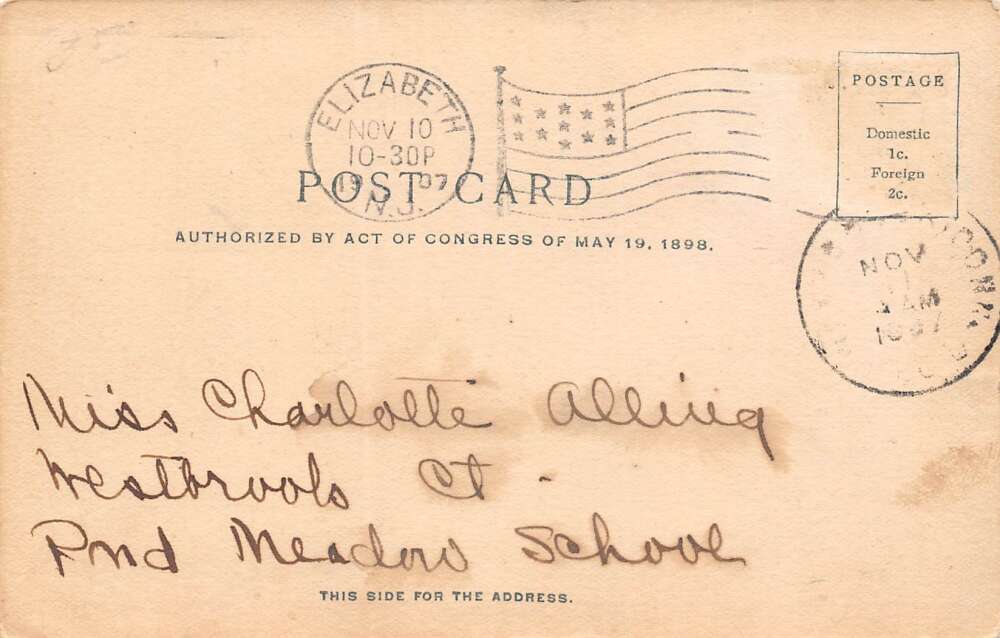 ELIZABETH
NOV 10
10-30P
19 07
N.J.
POSTAGE
Domestic
1c.
Foreign
2c.
POST CARD
AUTHORIZED BY ACT OF CONGRESS OF MAY 19, 1898.
NOV
AM
CONN.
Miss Charlotte Alling
Westbrook Ct.
Pnd Meadow School
THIS SIDE FOR THE ADDRESS.